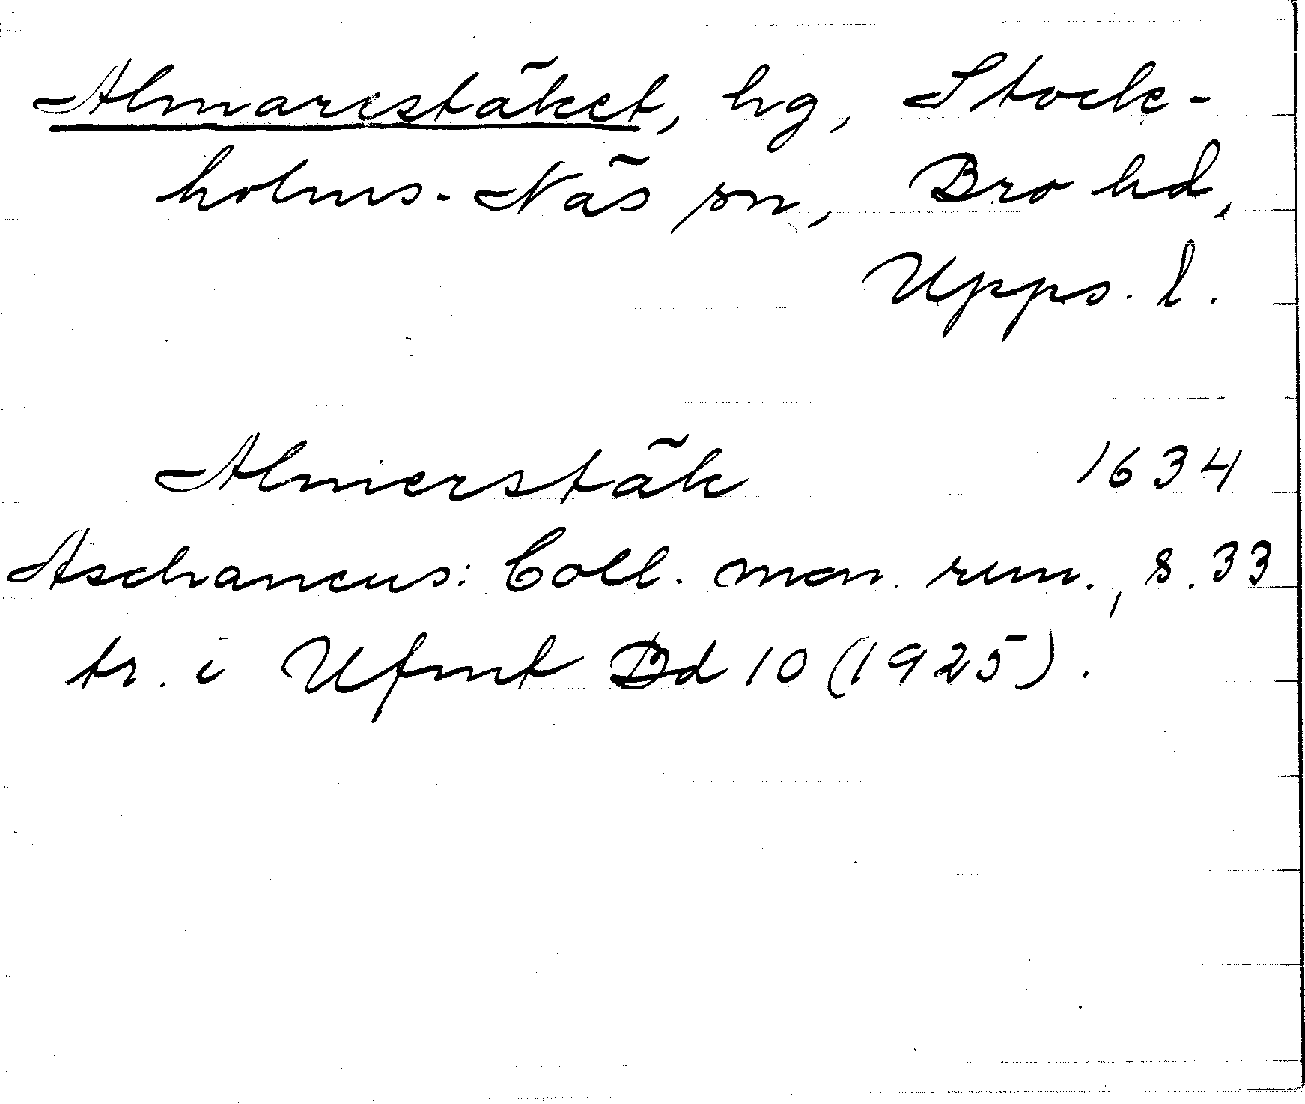 Almarestäket, hg, Stock-
holms-Näs sn, Bro hd,
Upps. l.
Almerstäk 1634
Aschaneus: Coll. mon. run., s. 33
tr. i Ufmt Bd 10 (1925).